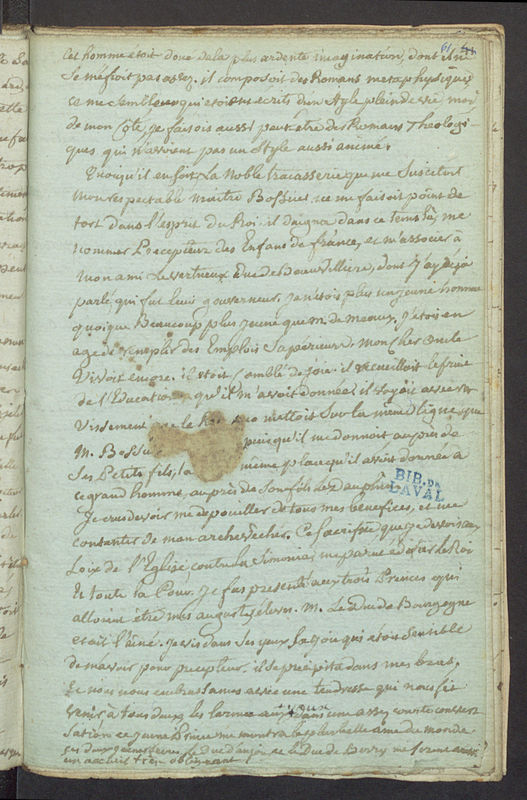 61
cet homme étoit doué de la plus ardente imagination, dont il ne
se méfioit pas assez. il composoit des Romans metaphysiques
ce me semble qui etoient écrits d'un style plein de vie, moi
de mon côté, je faisois aussi peut être des Romans Théologi-
ques qui n'avoient pas un style aussi animé.
quoiqu'il en soit la Noble tracasserie que me suscitoit
mon respectable maitre Bossuet ne me faisoit point de
tort dans l'esprit du Roi. il daigna dans ce tems là, me
nommer Précepteur des Enfans de france, et m'associer à
mon ami Le vertueux Duc de Beauvilliers, dont j'ai déjà
parlé, qui fut leur gouverneur. je n'étois plus un jeune homme
quoique Beaucoup plus jeune que m. de meaux. j'étois en
age de remplir des Emplois Supérieurs. mon cher oncle
vivoit encore. il étoit comblé de joie. il recueilloit le fruit
de l'Education qu'il m'avoit donnée. il voyoit avec ra
vissement que le Roi me mettoit sur la même ligne que
M. Bossuet puisqu'il me donnoit auprès de
ses Petits fils, la même place qu'il avoit donnée à
ce grand homme, auprès de son fils le dauphin.
BIB. DE
LAVAL
Je crus devoir me depouiller de tous mes bénéfices, et me
contenter de mon archevêcher. Ce sacrifice que je devois aux
Loix de l'Eglise contre la Simonie, me parut édifier le Roi
et toute la Cour. je fus presenté aux trois Princes qui
alloient être mes augustes élèves. M. Le Duc de Bourgogne
etait l'ainé. je vis dans ses yeux la joie qui étoit sensible
de m'avoir pour precepteur. il se précipita dans mes bras,
et nous nous embrassames avec une tendresse qui nous fit
venir à tous deux les larmes aux yeux dans une assez courte conver
sation ce jeune Prince me montra la plus belle ame du monde
ses deux jeunes freres le Duc d'anjou et le Duc de Berry me firent aussi
un accueil très obligeant.